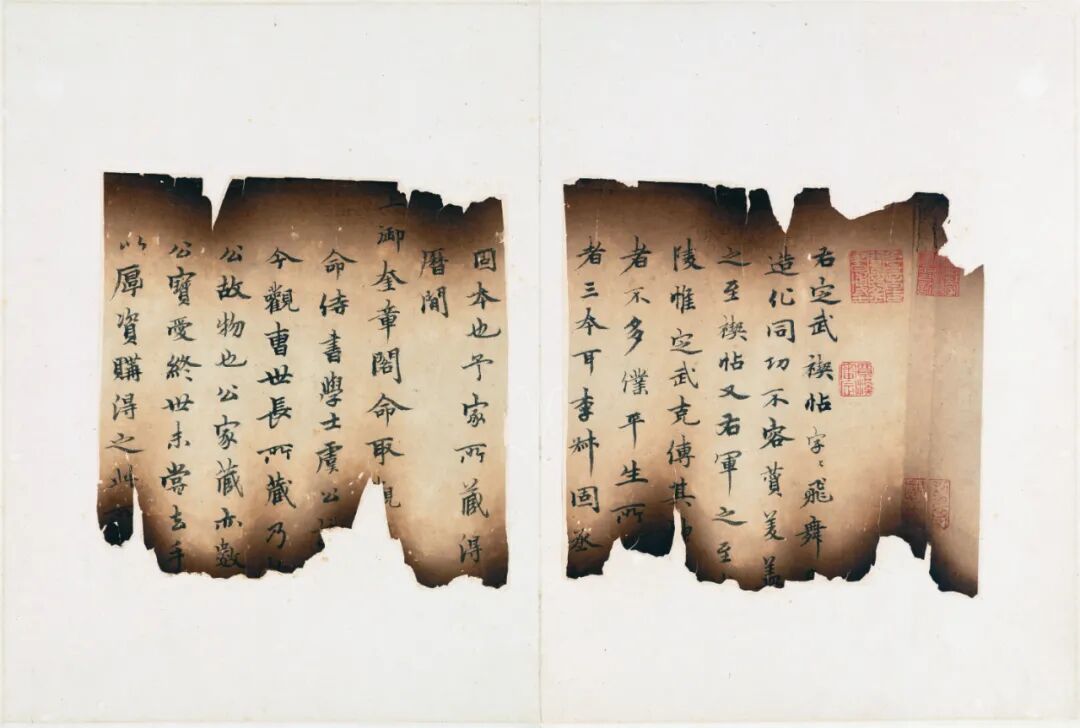 右定武禊帖字〻飛舞
造化同功不容贊美蓋
之至禊帖又右軍之至
陵惟定武克傳其
者不多僕平生所
者三本耳李叔固丞
固本也予家所藏得
曆間
上御奎章閣命取觀
命侍書學士虞公
今觀曹世長所藏乃
公故物也公家藏亦數
公寶愛終世未嘗去手
以厚資購得之此